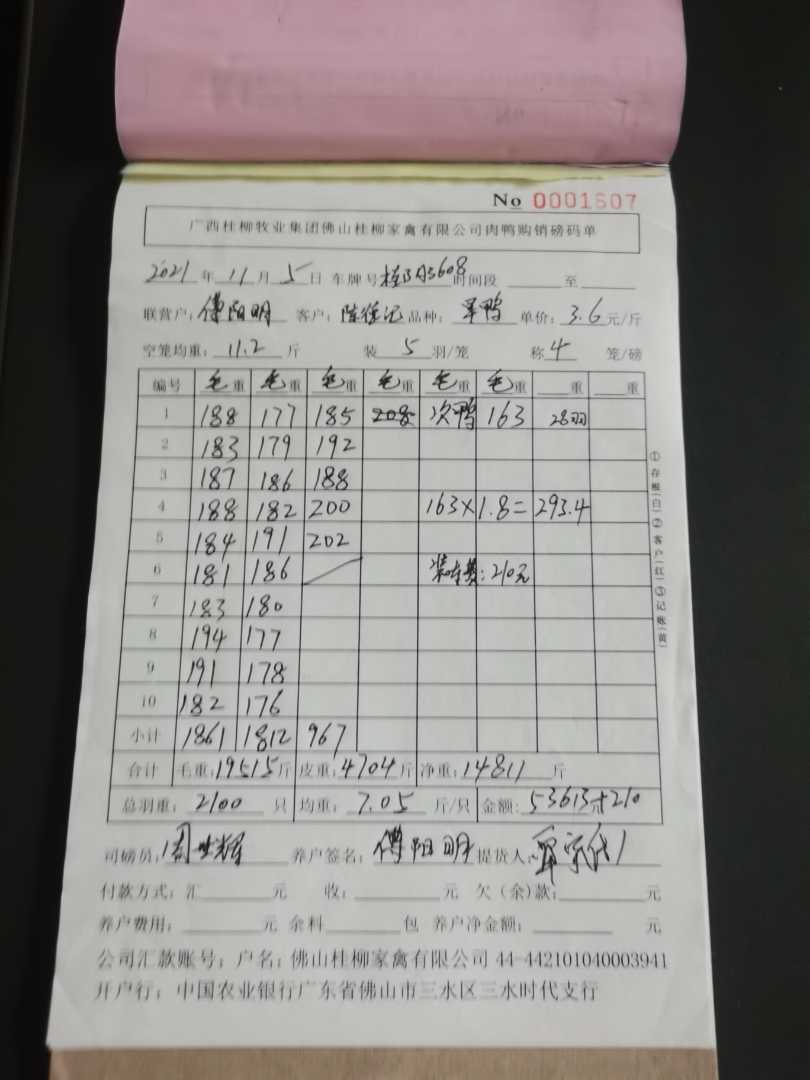 No 0001607
广西桂柳牧业集团佛山桂柳家禽有限公司肉鸭购销磅码单
2021年11月5日 车牌号 3608 时间段 至
联营户: 傅阳明 客户: 陈 记 品种: 鸭 单价: 3.6元/斤
空笼均重: 11.2 斤 装 5 羽/笼 称 4 笼/磅
编号 毛重 毛重 毛重 毛重 毛重 毛重 重 重
1 188 177 185 208 次鸭 163 28羽
2 183 179 192
3 187 186 188
4 188 182 200 163×1.8=293.4
5 184 191 202
6 181 186 装车费:210元
7 183 180
8 194 177
9 191 178
10 182 176
小计 1861 1812 967
合计 毛重:19515斤 皮重:4704斤 净重:14811斤
总羽重: 2100 只 均重: 7.05 斤/只 金额: 53613元+210
司磅员: 周世辉 养户签名: 傅阳明 提货人:
付款方式: 汇 元 收: 元 欠(余)款: 元
养户费用: 元 余料 包 养户净金额: 元
公司汇款账号: 户名: 佛山桂柳家禽有限公司 44-442101040003941
开户行: 中国农业银行广东省佛山市三水区三水时代支行
①存根(白)②客户(红)③记账(黄)